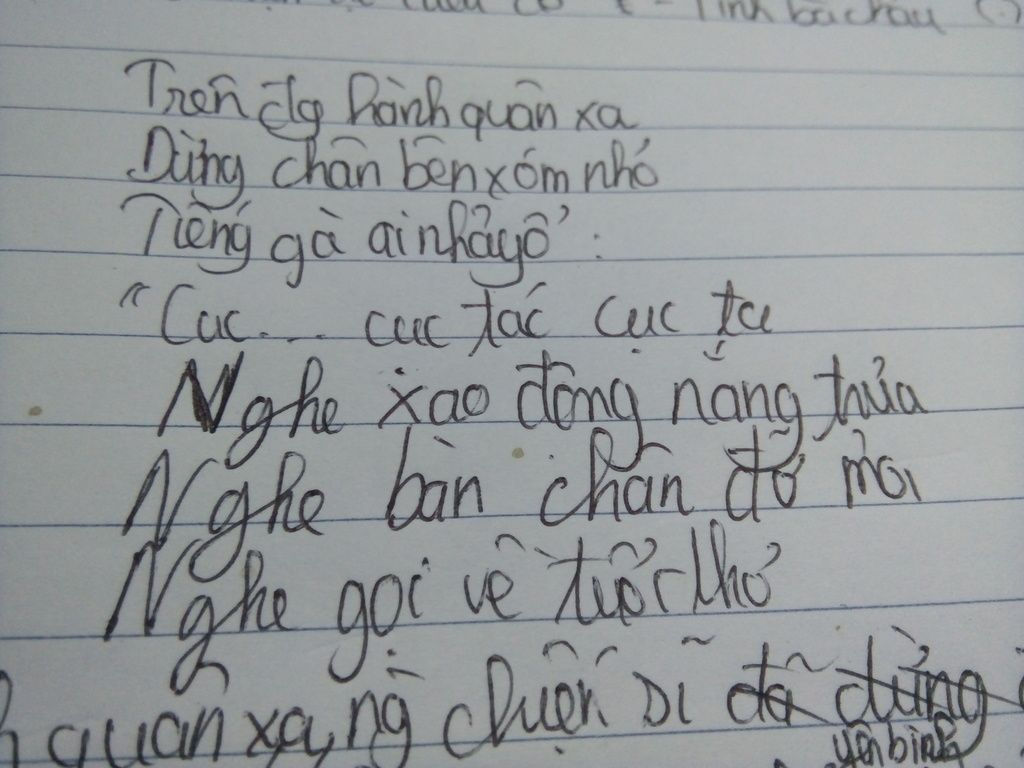 Tính bà cháu (.)
Trên đg hành quân xa
Dừng chân bên xóm nhỏ
Tiếng gà ai nhảy ổ :
"Cuc.... cuc tác cục ta
Nghe xao động nắng trưa
Nghe bàn chân đỡ mỏi
Nghe gọi về tuổi thơ
quân xa, ng chiến sĩ đã dừng
yên bình